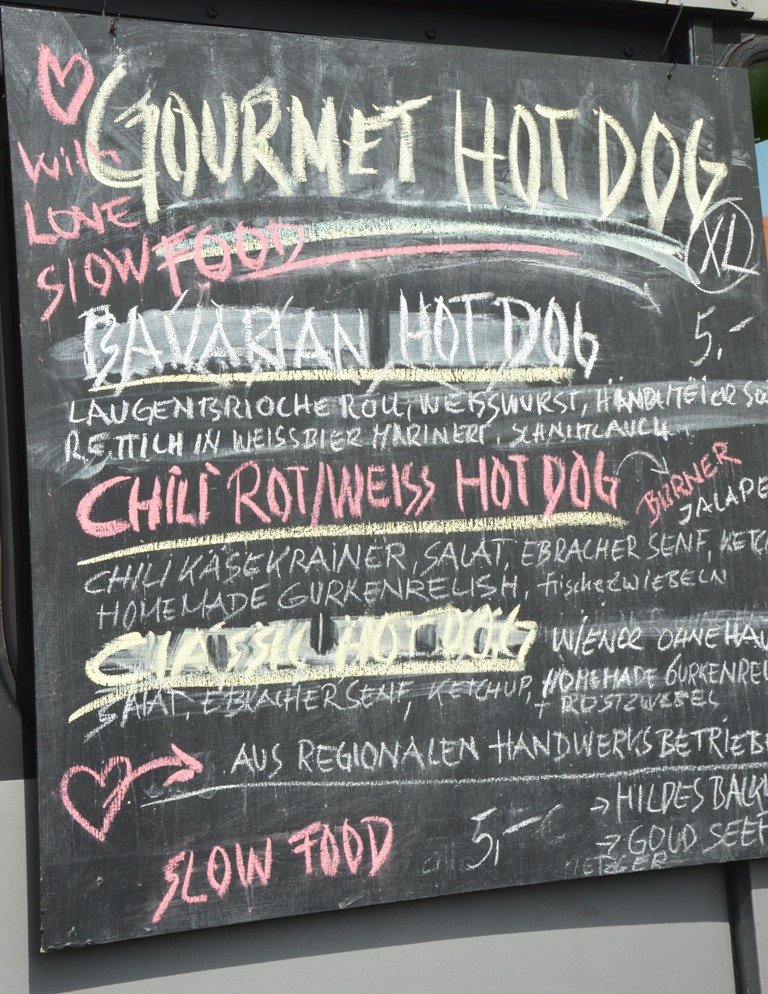 GOURMET HOT DOG
With
LOVE
SLOW FOOD
XL
BAVARIAN HOT DOG 5,-
LAUGENBRIOCHE ROLL, WEISSWURST,
RETTICH IN WEISSBIER MARINERT, SCHNITTLAUCH
CHILI ROT/WEISS HOT DOG BURNER
JALAPE
CHILI KÄSEKRAINER, SALAT, EBRACHER SENF, KETC
HOMEMADE GURKENRELISH, frische ZWIEBELN
CLASSIC HOT DOG WIENER OHNE HAU
SALAT, EBRACHER SENF, KETCHUP, HOMEMADE GURKENREL
+ RÖSTZWIEBEL
AUS REGIONALEN HANDWERKSBETRIEBE
→ HILDES BACK
SLOW FOOD 5,-
→ GOLD SEE